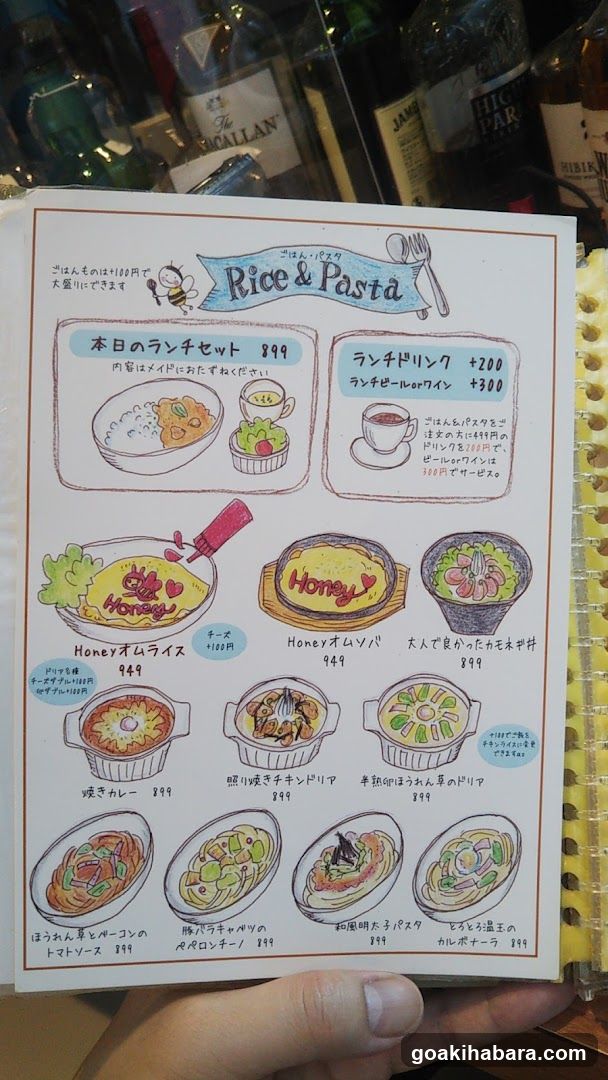 The
MACALLAN
JAME
HIGH
PAR
HIBIK
ごはんものは+100円で
大盛りにできます
ごはん・パスタ
Rice & Pasta
本日のランチセット 899
内容はメイドにおたずねください
ランチドリンク +200
ランチビールorワイン +300
ごはん&パスタをご
注文の方に499円の
ドリンクを200円で、
ビールorワインは
300円でサービス。
Honey
Honey
Honeyオムライス
949
チーズ
+100円
Honeyオムソバ
949
大人で良かったカモネギ丼
899
ドリア各種
チーズダブル+100円
卵ダブル+100円
焼きカレー 899
照り焼きチキンドリア
899
半熟卵ほうれん草のドリア
899
+100でご飯を
チキンライスに変更
できます
ほうれん草とベーコンの
トマトソース 899
豚バラキャベツの
ペペロンチーノ 899
和風明太子パスタ
899
とろとろ温玉の
カルボナーラ 899
goakihabara.com